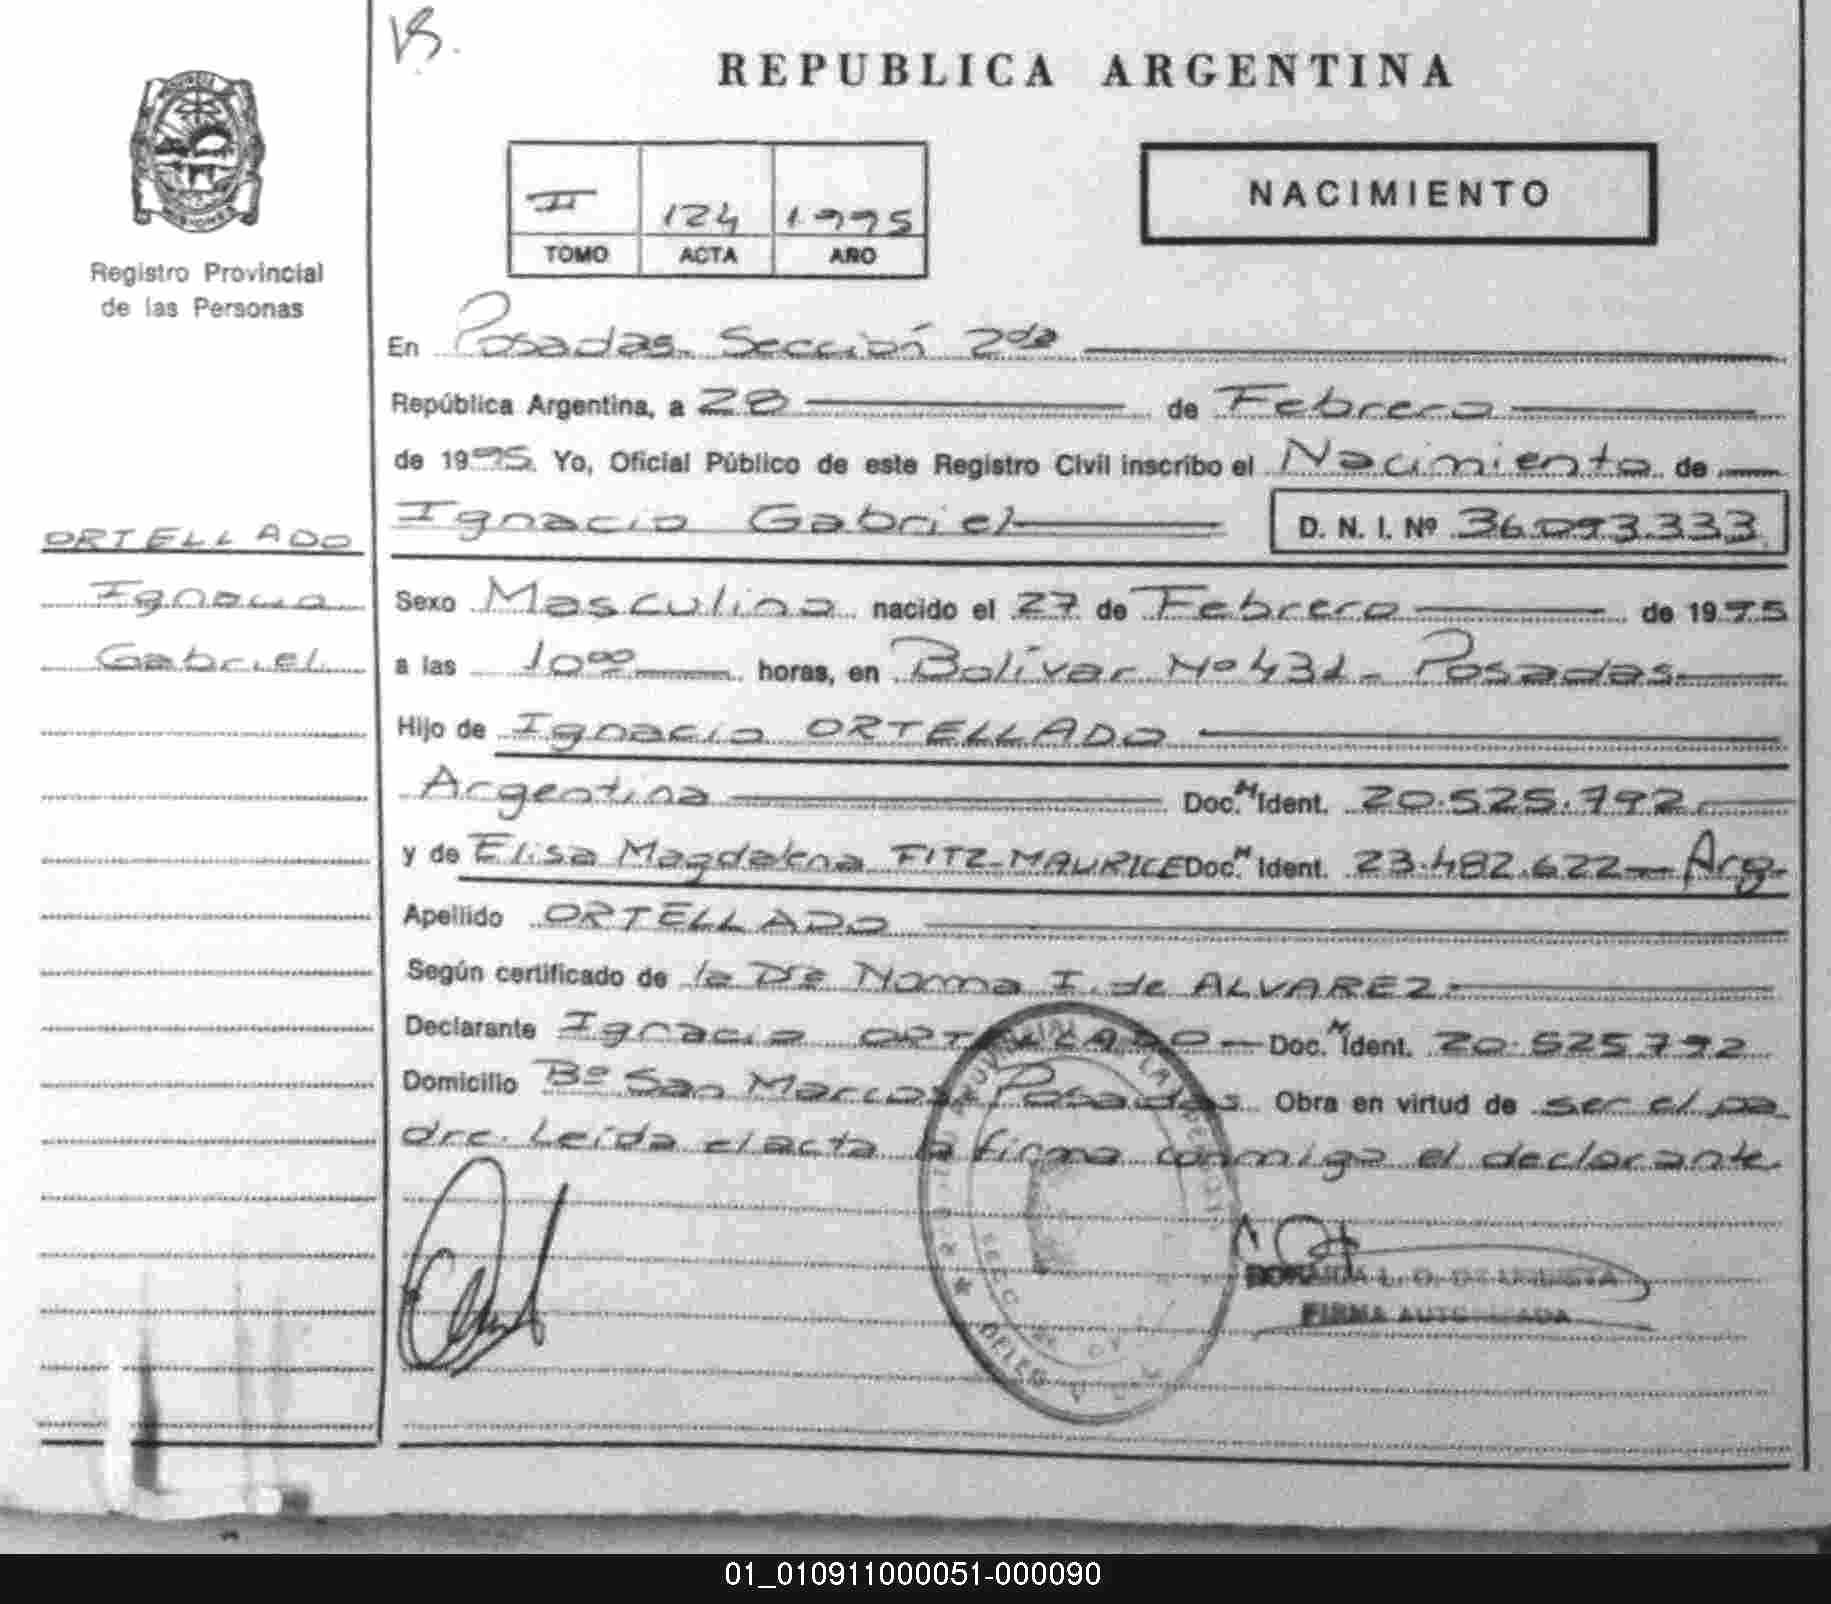 VB.
REPUBLICA ARGENTINA
NACIMIENTO
II 124 1995
TOMO ACTA AÑO
Registro Provincial
de las Personas
En Posadas Sección 2da
República Argentina, a 28 de Febrero
de 1995 Yo, Oficial Público de este Registro Civil inscribo el Nacimiento de
Ignacio Gabriel D. N. I. Nº 36.093.333
ORTELLADO
Ignacio
Gabriel
Sexo Masculino nacido el 27 de Febrero de 1995
a las 10⁰⁰ horas, en Bolívar Nº 431 - Posadas
Hijo de Ignacio ORTELLADO
Argentina Doc. N Ident. 20.525.792
y de Elisa Magdalena FITZ-MAURICE Doc. N Ident. 23.482.622 - Arg-
Apellido ORTELLADO
Según certificado de la Dra Norma I. de ALVAREZ.
Declarante Ignacio ORTELLADO - Doc. N Ident. 20.525.792
Domicilio Bº San Marcos Posadas Obra en virtud de ser el pa
dre. Leída el acta la firma conmigo el declarante
FIRMA AUTORIZADA
01_010911000051-000090